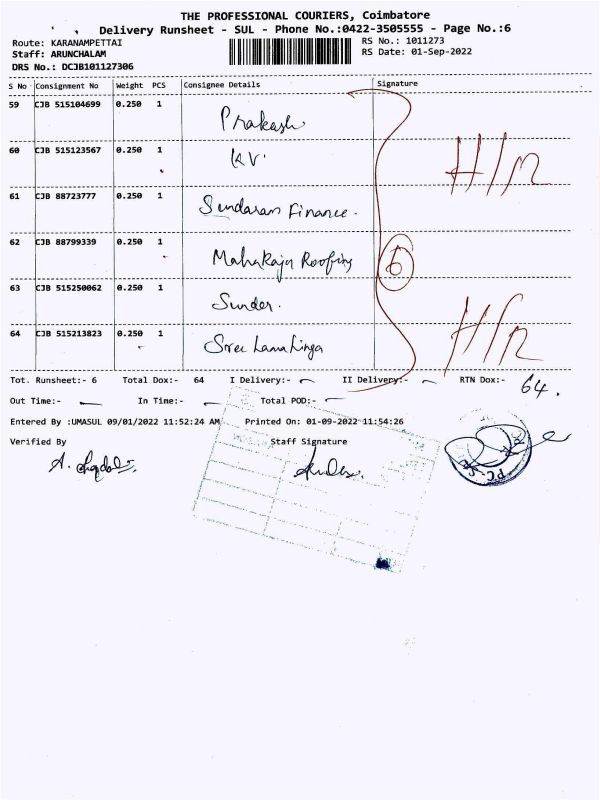 THE PROFESSIONAL COURIERS, Coimbatore
Delivery Runsheet - SUL - Phone No.:0422-3505555 - Page No.:6
Route: KARANAMPETTAI RS No.: 1011273
Staff: ARUNCHALAM RS Date: 01-Sep-2022
DRS No.: DCJB101127306
S No Consignment No Weight PCS Consignee Details Signature
59 CJB 515104699 0.250 1 Prakash
60 CJB 515123567 0.250 1 KV. H/R
61 CJB 88723777 0.250 1 Sundaram Finance.
62 CJB 88799339 0.250 1 Maharaja Roofing 6
63 CJB 515250062 0.250 1 Sunder.
64 CJB 515213823 0.250 1 Sree H/R
Tot. Runsheet:- 6 Total Dox:- 64 I Delivery:- II Delivery:- RTN Dox:- 64.
Out Time:- In Time:- Total POD:-
Entered By :UMASUL 09/01/2022 11:52:24 AM Printed On: 01-09-2022 11:54:26
Verified By Staff Signature